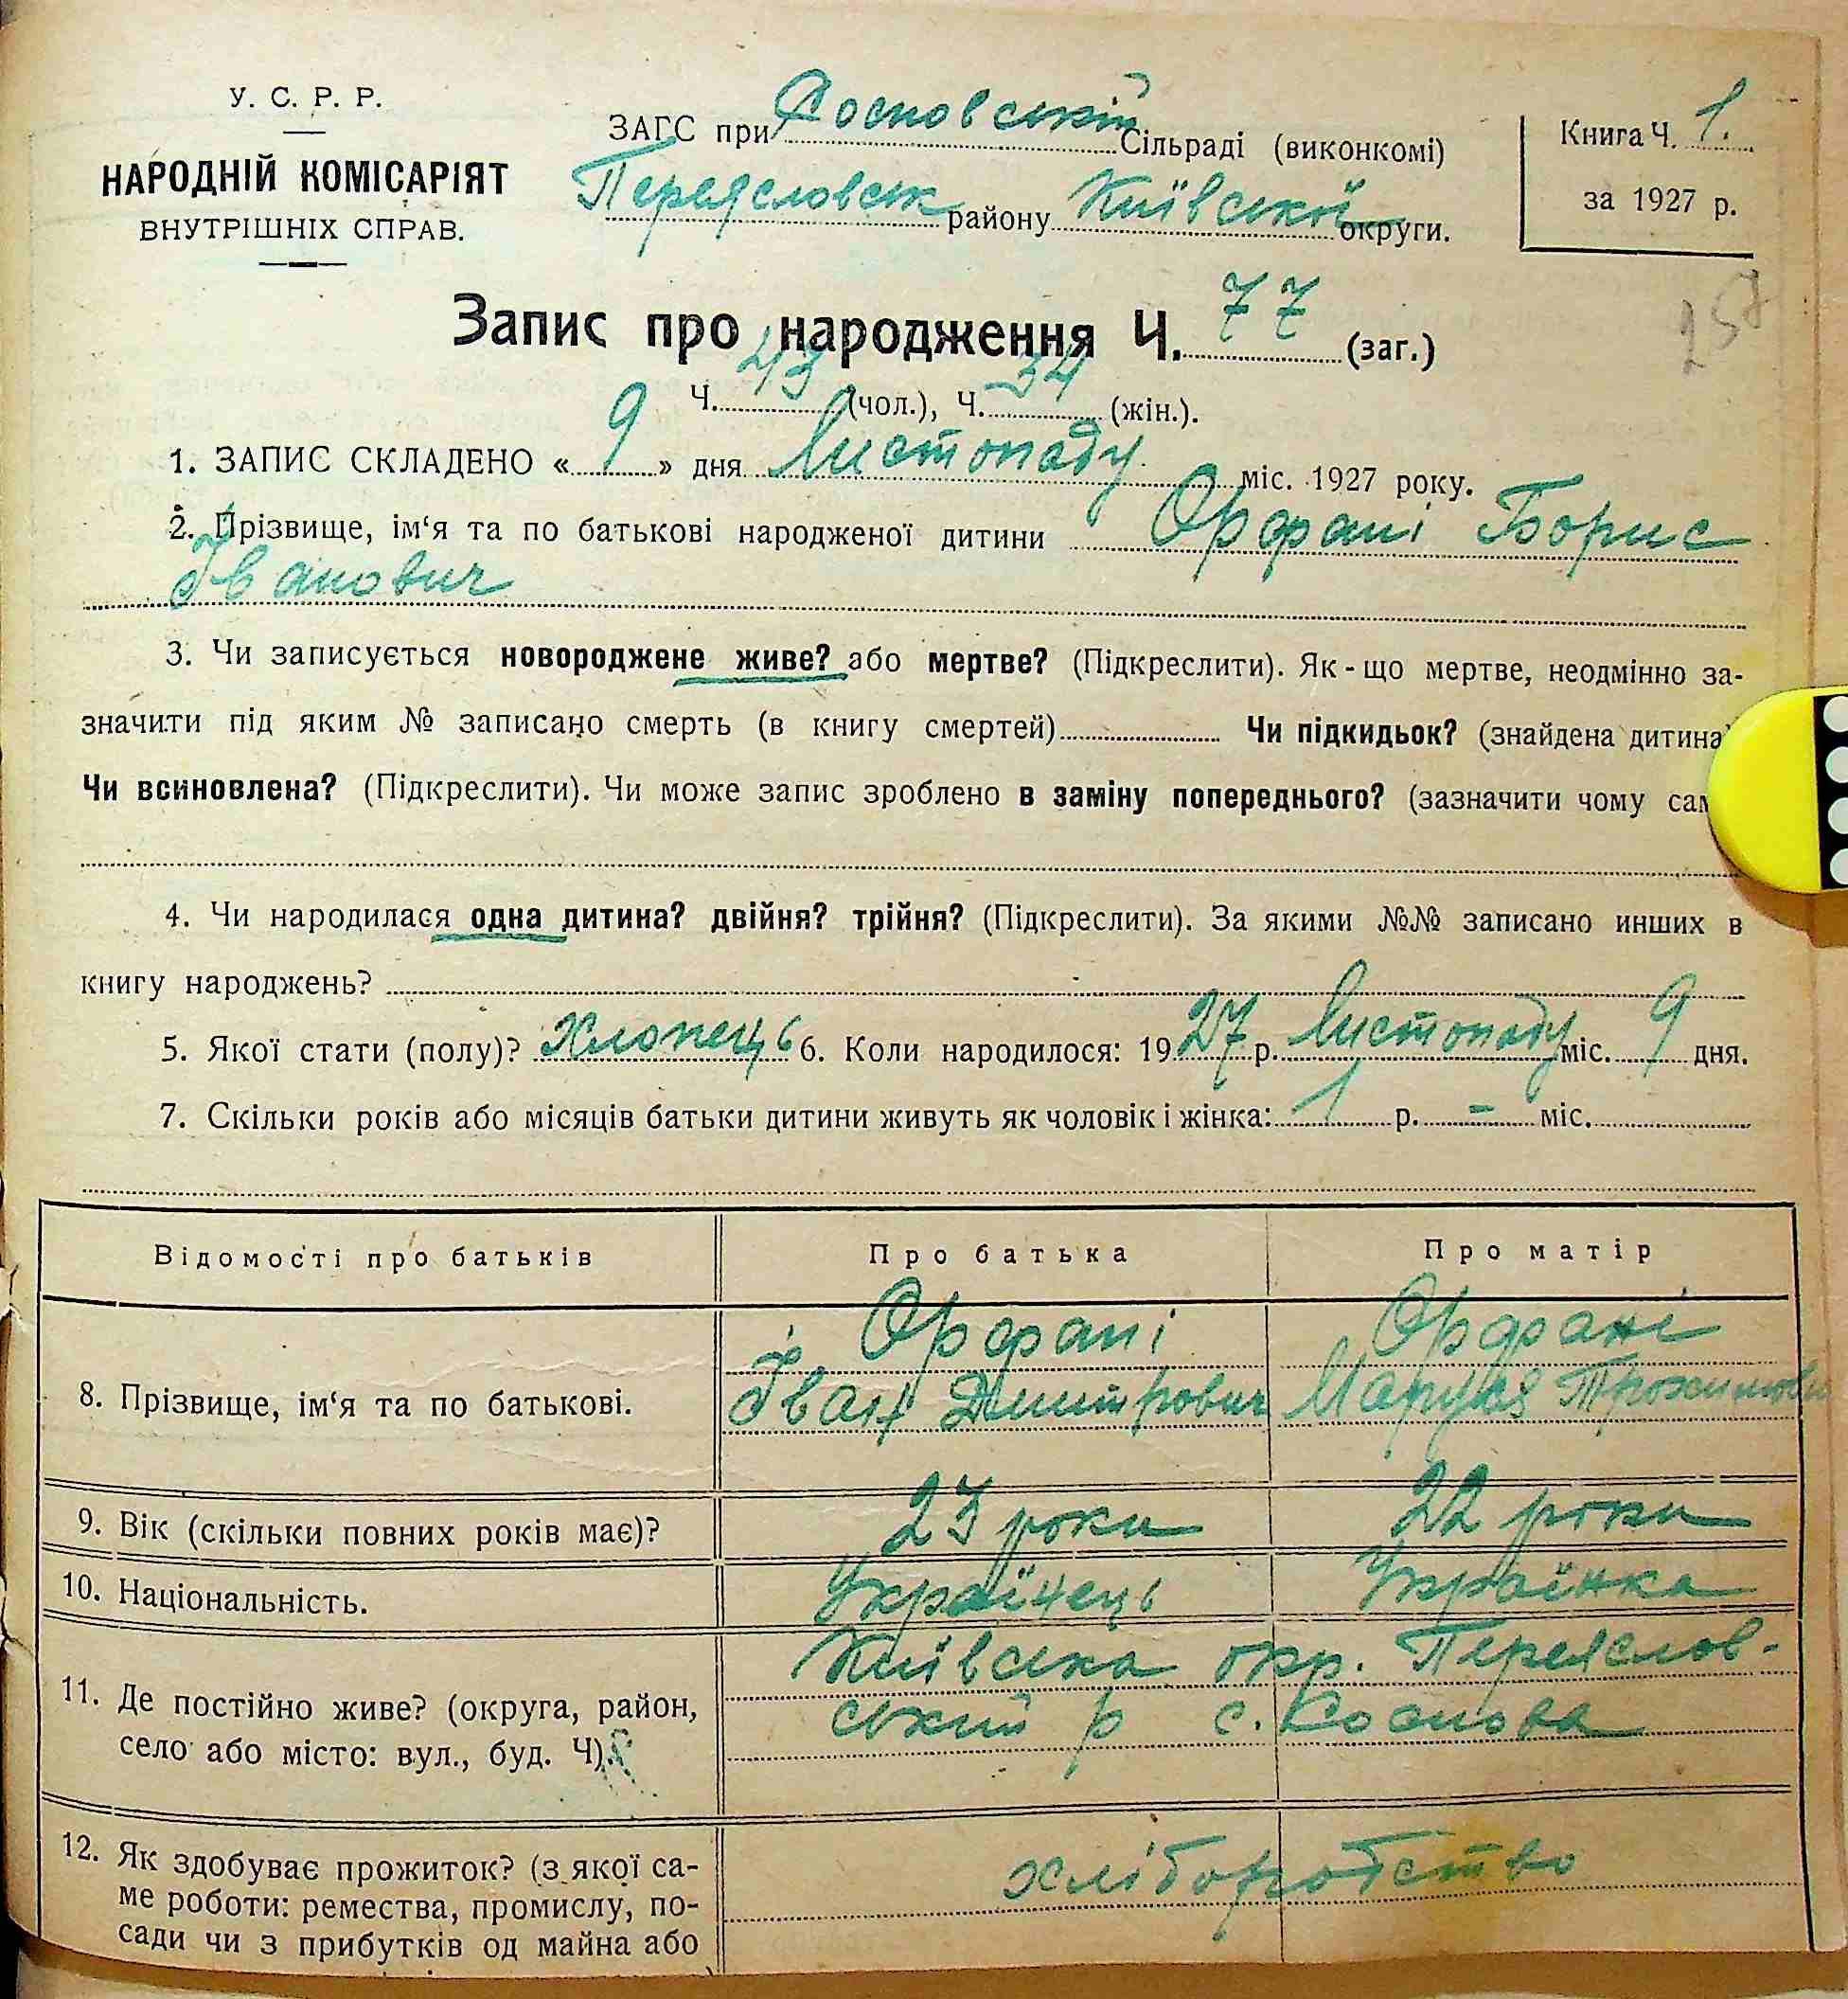 У. С. Р. Р.
НАРОДНІЙ КОМІСАРІЯТ
ВНУТРІШНІХ СПРАВ.
ЗАГС при Сосновській Сільраді (виконкомі)
Переясловськ району Київської округи.
Книга Ч. 1.
за 1927 р.
257
Запис про народження Ч. 77 (заг.)
Ч. 43 (чол.), Ч. 34 (жін.).
1. ЗАПИС СКЛАДЕНО « 9 » дня Листопаду міс. 1927 року.
2. Прізвище, ім‘я та по батькові народженої дитини Орфані Борис
Іванович
3. Чи записується новороджене живе? або мертве? (Підкреслити). Як-що мертве, неодмінно за-
значити під яким № записано смерть (в книгу смертей) Чи підкидьок? (знайдена дитина)
Чи всиновлена? (Підкреслити). Чи може запис зроблено в заміну попереднього? (зазначити чому
4. Чи народилася одна дитина? двійня? трійня? (Підкреслити). За якими №№ записано инших в
книгу народжень?
5. Якої стати (полу)? Хлопець 6. Коли народилося: 1927 р. Листопаду міс. 9 дня.
7. Скільки років або місяців батьки дитини живуть як чоловік і жінка: 1 р. - міс.
Відомості про батьків Про батька Про матір
Орфані Орфані
8. Прізвище, ім‘я та по батькові. Іван Дмитрович Маруся
9. Вік (скільки повних років має)? 23 роки 22 роки
10. Національність. Українець Українка
11. Де постійно живе? (округа, район, Київська окр. Переяслов-
село або місто: вул., буд. Ч). ський р с. Соснова
12. Як здобуває прожиток? (з якої са- хліборобство
ме роботи: ремества, промислу, по-
сади чи з прибутків од майна або